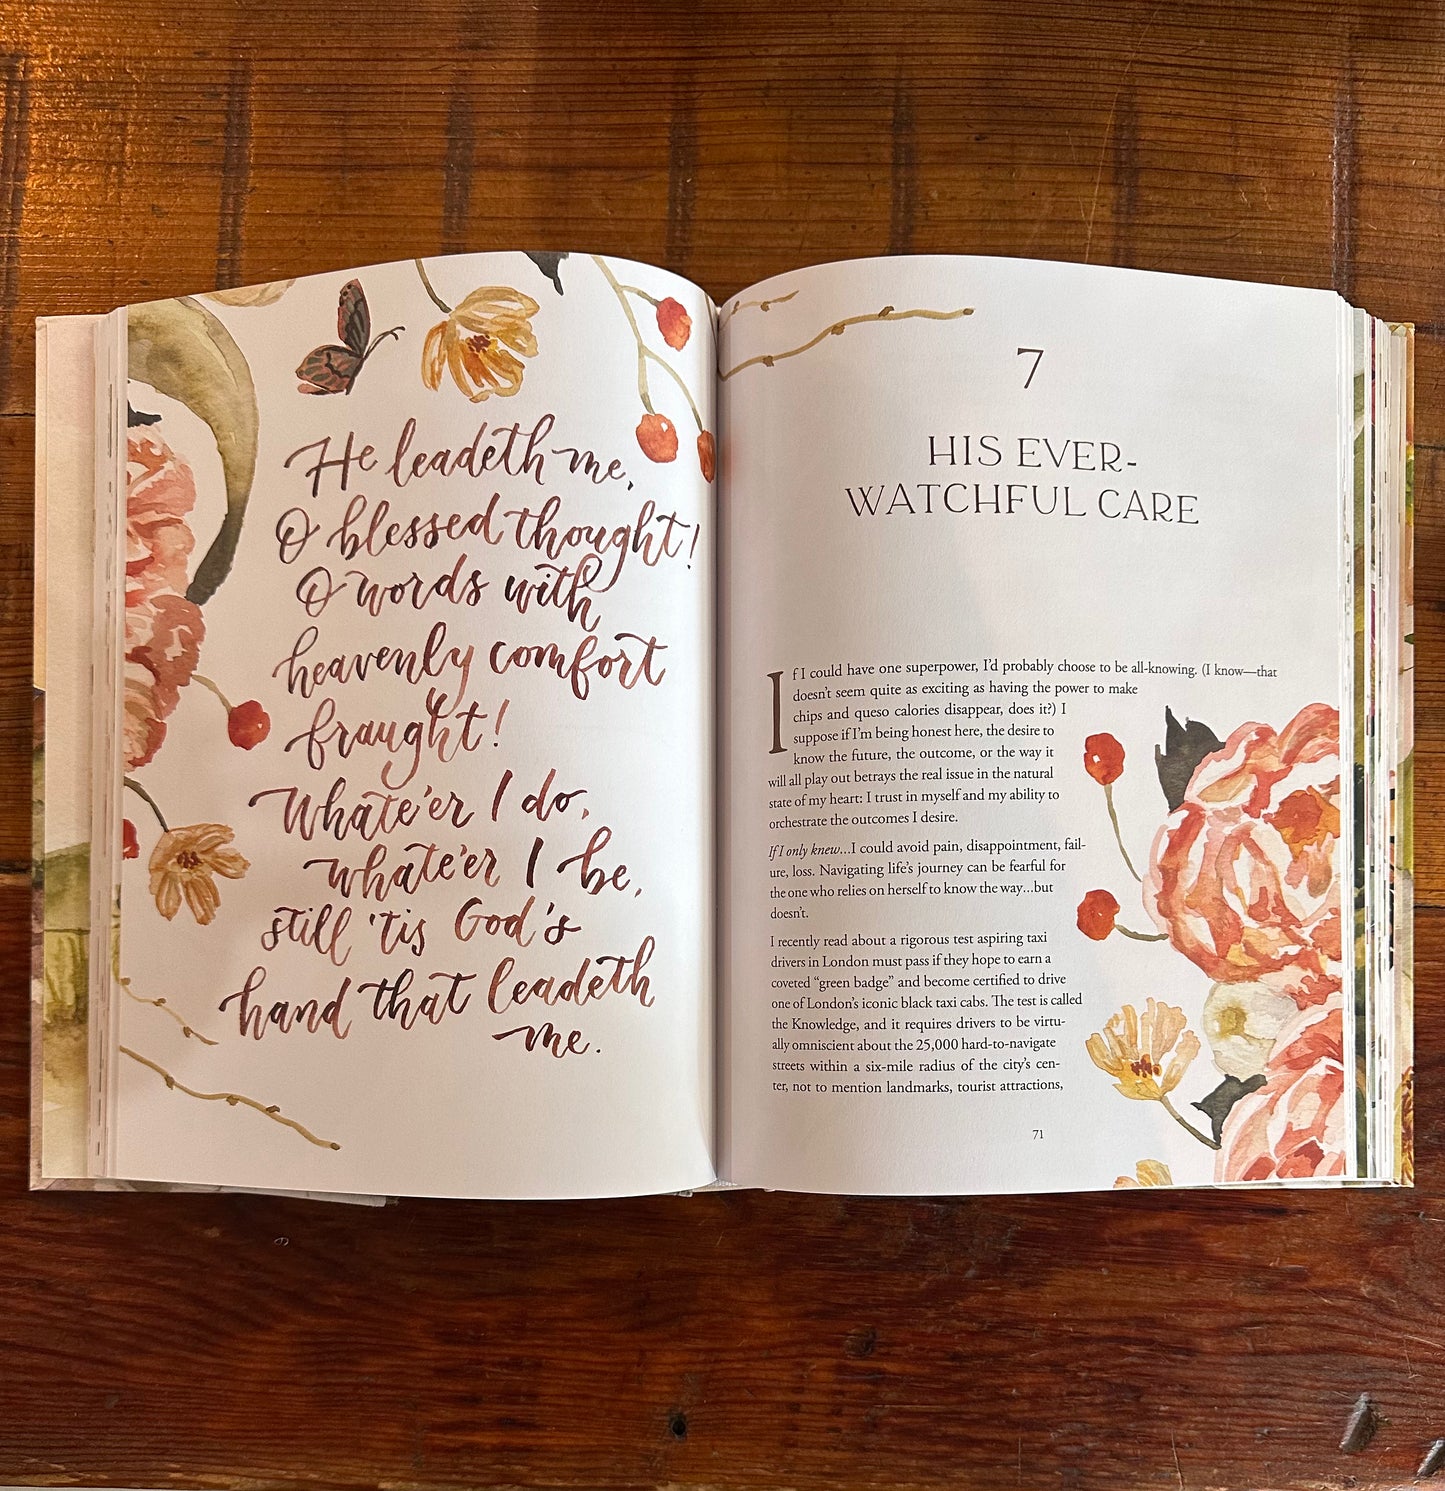 He leadeth me,
O blessed thought!
O words with
heavenly comfort
fraught!
Whate'er I do,
whate'er I be,
still 'tis God's
hand that leadeth
me.
7
HIS EVER-
WATCHFUL CARE
If I could have one superpower, I'd probably choose to be all-knowing. (I know—that
doesn't seem quite as exciting as having the power to make
chips and queso calories disappear, does it?) I
suppose if I'm being honest here, the desire to
know the future, the outcome, or the way it
will all play out betrays the real issue in the natural
state of my heart: I trust in myself and my ability to
orchestrate the outcomes I desire.
If I only knew...I could avoid pain, disappointment, fail-
ure, loss. Navigating life's journey can be fearful for
the one who relies on herself to know the way...but
doesn't.
I recently read about a rigorous test aspiring taxi
drivers in London must pass if they hope to earn a
coveted “green badge” and become certified to drive
one of London's iconic black taxi cabs. The test is called
the Knowledge, and it requires drivers to be virtu-
ally omniscient about the 25,000 hard-to-navigate
streets within a six-mile radius of the city's cen-
ter, not to mention landmarks, tourist attractions,
71